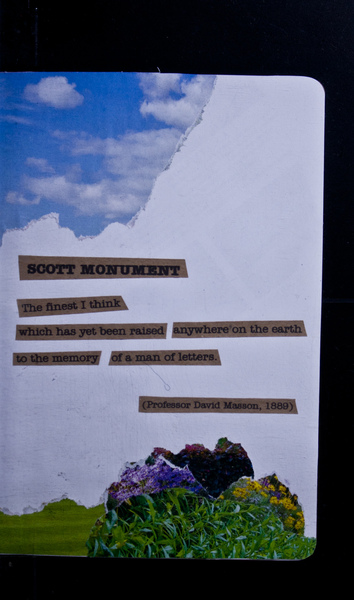 SCOTT MONUMENT
The finest I think
which has yet been raised anywhere on the earth
to the memory of a man of letters.
(Professor David Masson, 1889)